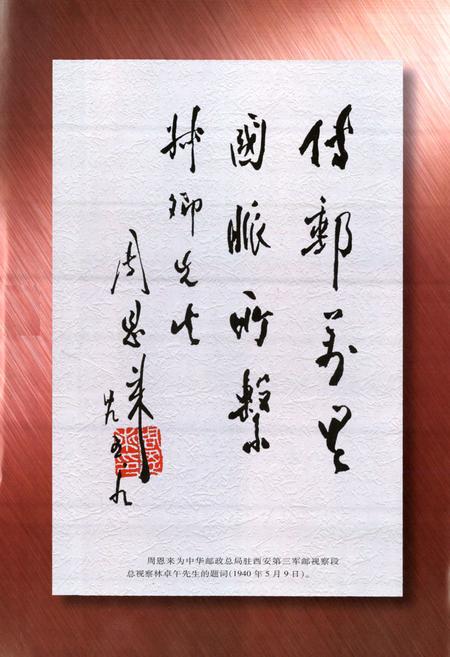 傳郵萬里
國脈所繫
卿先生
周恩來
五·九
周恩來为中华邮政总局驻西安第三军邮视察段
总视察林卓午先生的题词(1940年5月9日)。